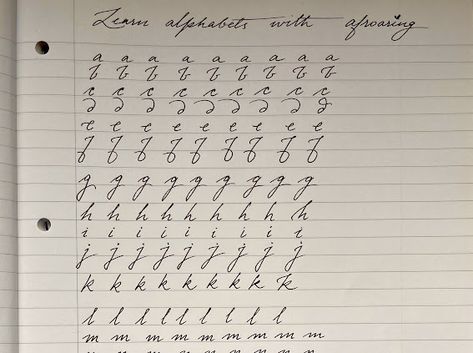 Learn alphabets with afroaring
a a a a a a a a a
b b b b b b b b b
c c c c c c c c c
d d d d d d d d d
e e e e e e e e e
f f f f f f f f f
g g g g g g g g g
h h h h h h h h h
i i i i i i i i i
j j j j j j j j j
k k k k k k k k k
l l l l l l l l
m m m m m m m m m
n n n n n n n n